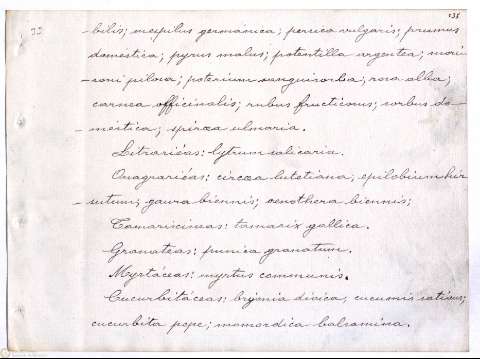 135
33
-bilis; mespilus germánica; persica vulgaris; prunus
doméstica; pyrus malus; potentilla argentea; mori-
-soni pilosa; poterium sanguisorba; rosa alba;
carnea officinalis; rubus fructicosus; sorbus do-
-méstica; spiræa ulmaria.
Litrariéas: lytrum salicaria.
Onagrariéas: circæa lutetiana; epilobium hir
-sutum; gaura biennis; oenothera biennis;
Tamariscineas: tamarix gallica.
Granateas: punica granatum.
Myrtáceas: myrtus communis.
Cucurbitáceas: brijonia dioica; cucumis sativus;
cucurbita pepe; momordica balsamina.